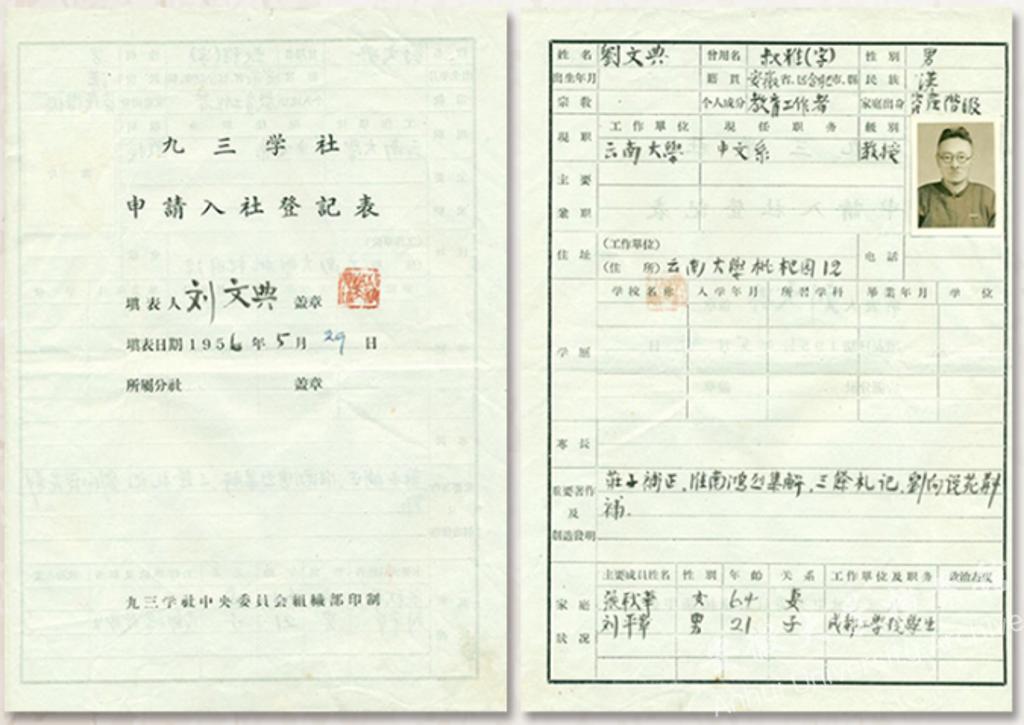 九三学社
申請入社登記表
填表人 刘文典 盖章
填表日期 1956 年 5 月 29 日
所屬分社 盖章
九三学社中央委員会組織部印制
姓名 劉文典 曾用名 叔雅(字) 性別 男
出生年月 籍貫 安徽省、区合肥市、縣 民族 漢
宗教 个人成分 教育工作者 家庭出身 資産階級
現职 工作單位 現任职务 級別
云南大學 中文系 教授
主要
兼职
住址 (工作單位) 电話
(住所) 云南大學枇杷园12
学校名称 入学年月 所習学科 畢業年月 学位
学歷
專長
重要著作 莊子補正、淮南鸿烈集解、三餘札记、劉向说苑斠
及 補.
創造發明
主要成員姓名 性別 年齡 关系 工作單位及职务 政治态度
家庭 張秋華 女 64 妻
狀况 刘平章 男 21 子 成都工學院學生